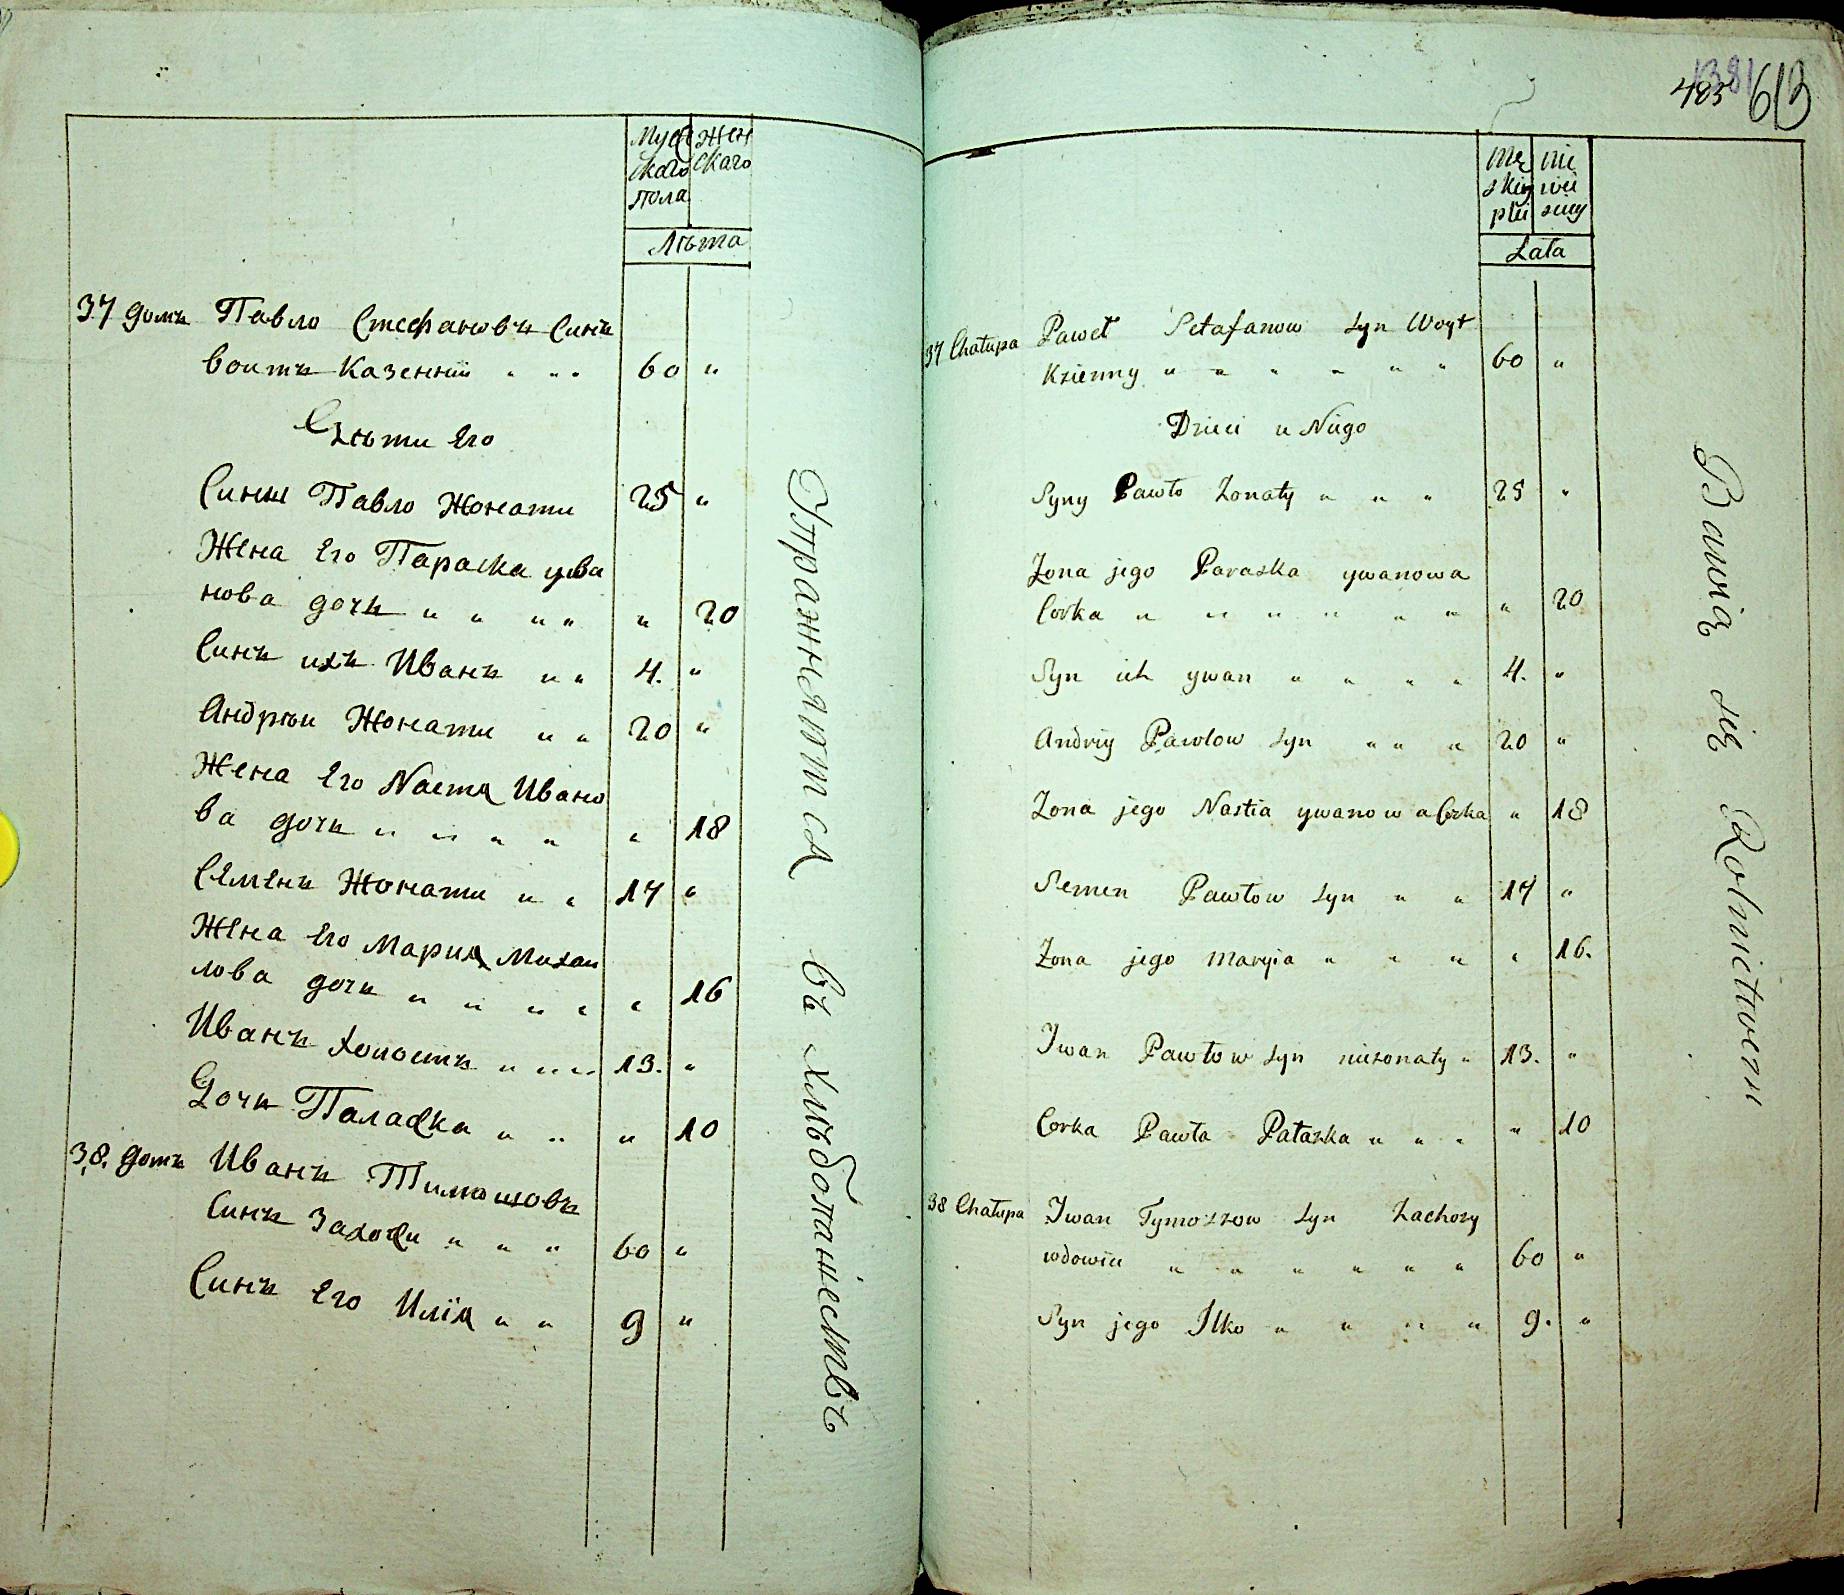 Муж ског пола
Жен скаго
Лѣта
37 домъ Павло Стефановъ Синъ
воитъ Казенний " " " 60 "
Дѣти Его
Синъ Павло Жонати 25 "
Жена Его Параска ива
нова дочъ " " " " " 20
Синъ ихъ Иванъ " " 4. "
Андрѣи Жонати " " 20 "
Жена Его Nастя Ивано
ва дочъ " " " " " 18
Семенъ Жонати " " 17 "
Жена Его Мария Михаи
лова дочъ " " " " " 16
Иванъ холостъ " " " " 13. "
Дочъ Паласка " " " 10
38. домъ Иванъ Тимошовъ
Синъ Заходи " " " 60 "
Синъ Его Илїя " " 9 "
Упражняются въ хлѣбопашествѣ
483 1381 613
Mę skiey płci
nie wie sciey
Lata
37 Chałupa Paweł Sctafanow syn Woyt
Ksienny " " " " " " 60 "
Dzieci u Niego
Syny Pawło Zonaty " " " 25 "
Zona jego Paraska ywanowa
Corka " " " " " " " 20
Syn ich ywan " " " " 4. "
Andriy Pawłow syn " " " 20 "
Zona jego Nastia ywanowa Corka " 18
Semen Pawłow syn " " 17 "
Zona jego Maryia " " " " 16.
Iwan Pawłow syn niezonaty " 13. "
Corka Pawła Pałaszka " " " " 10
38 Chałupa Iwan Tymoszow syn Zachozy
wdowiec " " " " " " 60 "
Syn jego Ilko " " " " 9. "
Bawią się Rolnictwem